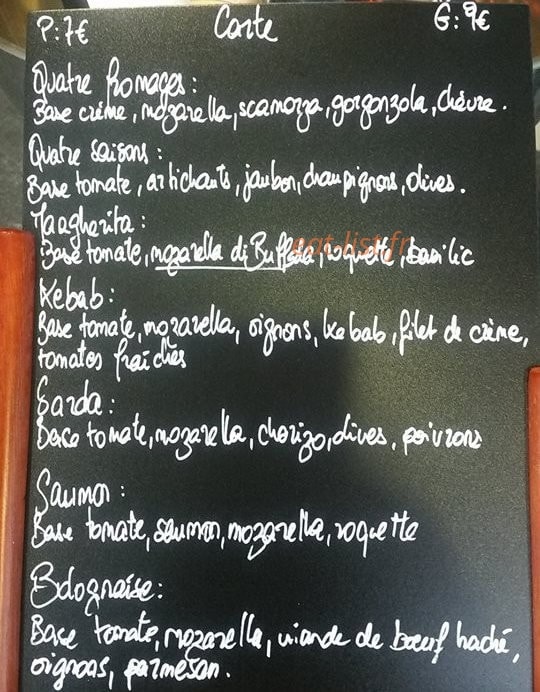 P: 7€ Carte G: 9€
Quatre fromages :
Base crème, mozarella, scamorza, gorgonzola, chèvre.
Quatre saisons :
Base tomate, artichauts, jambon, champignons, olives.
Margherita :
Base tomate, mozarella di Buffala, roquette, basilic
eat-list.fr
Kebab :
Base tomate, mozarella, oignons, kebab, filet de crème,
tomates fraîches
Sarda :
Base tomate, mozarella, chorizo, olives, poivrons
Saumon :
Base tomate, saumon, mozarella, roquette
Bolognaise :
Base tomate, mozarella, viande de bœuf haché,
oignons, parmesan.